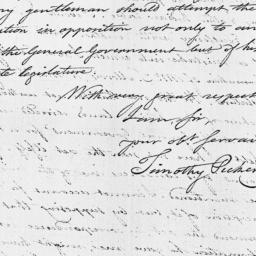 ny gentleman should attempt the
ution in opposition not only to
the General Government but of his
te legislature.
With very great respect
I am, Sir,
your obt. Serva
Timothy Picker